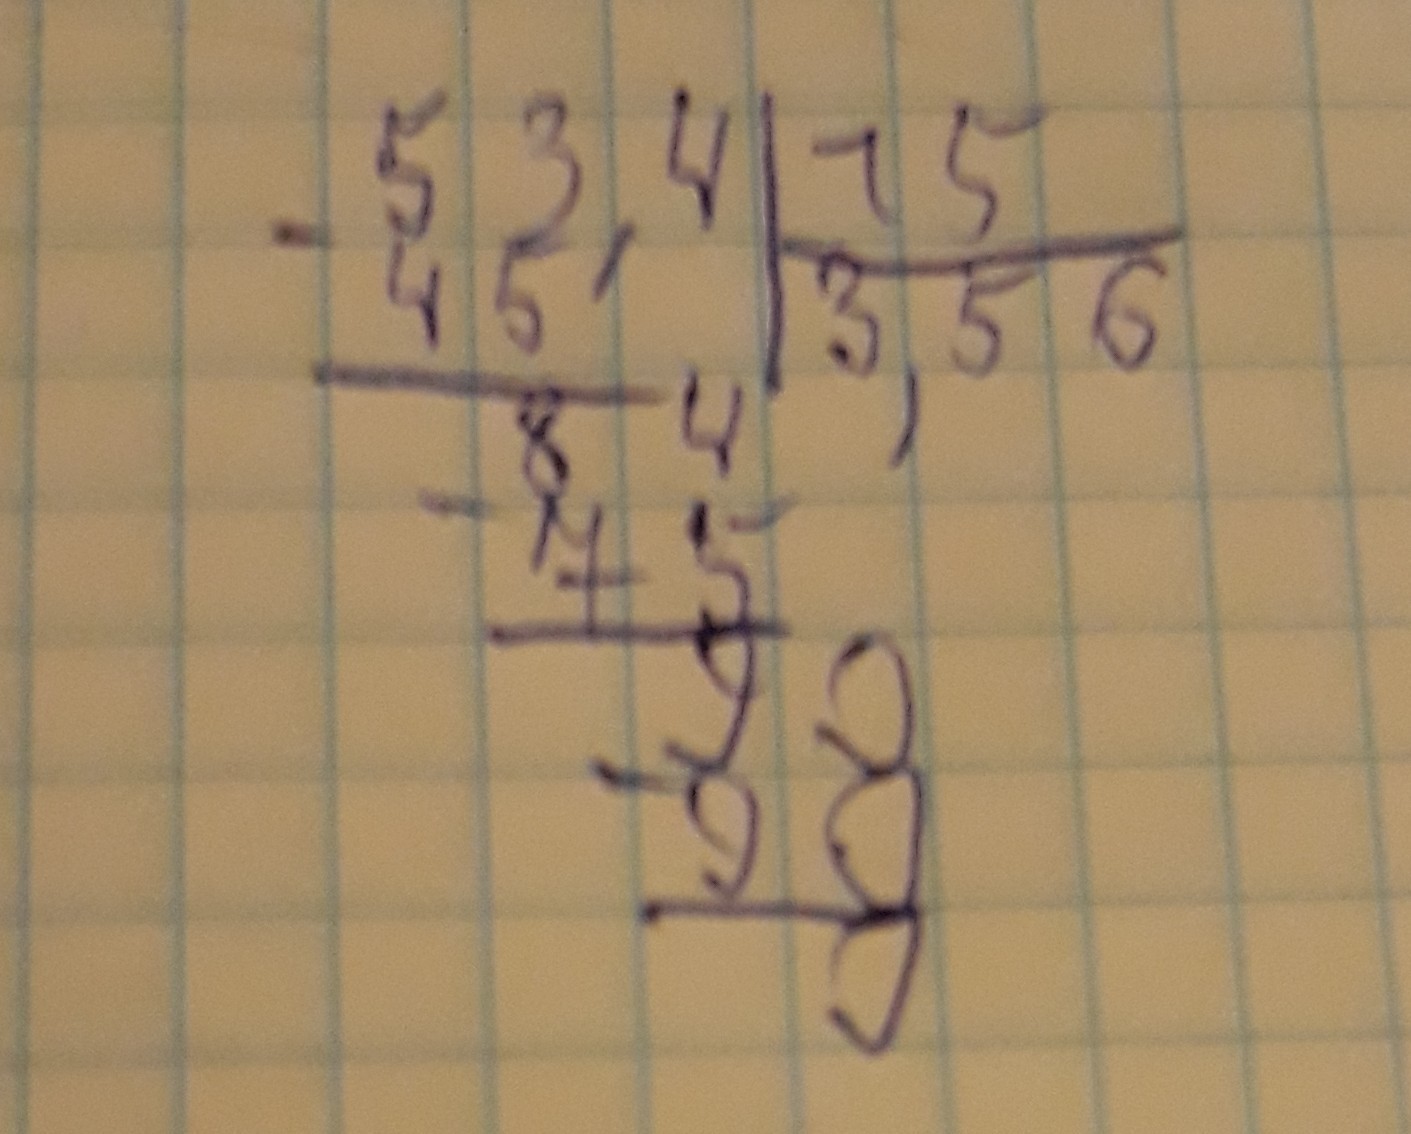 53,4 15
- 45 3,56
84
- 75
90
- 90
0